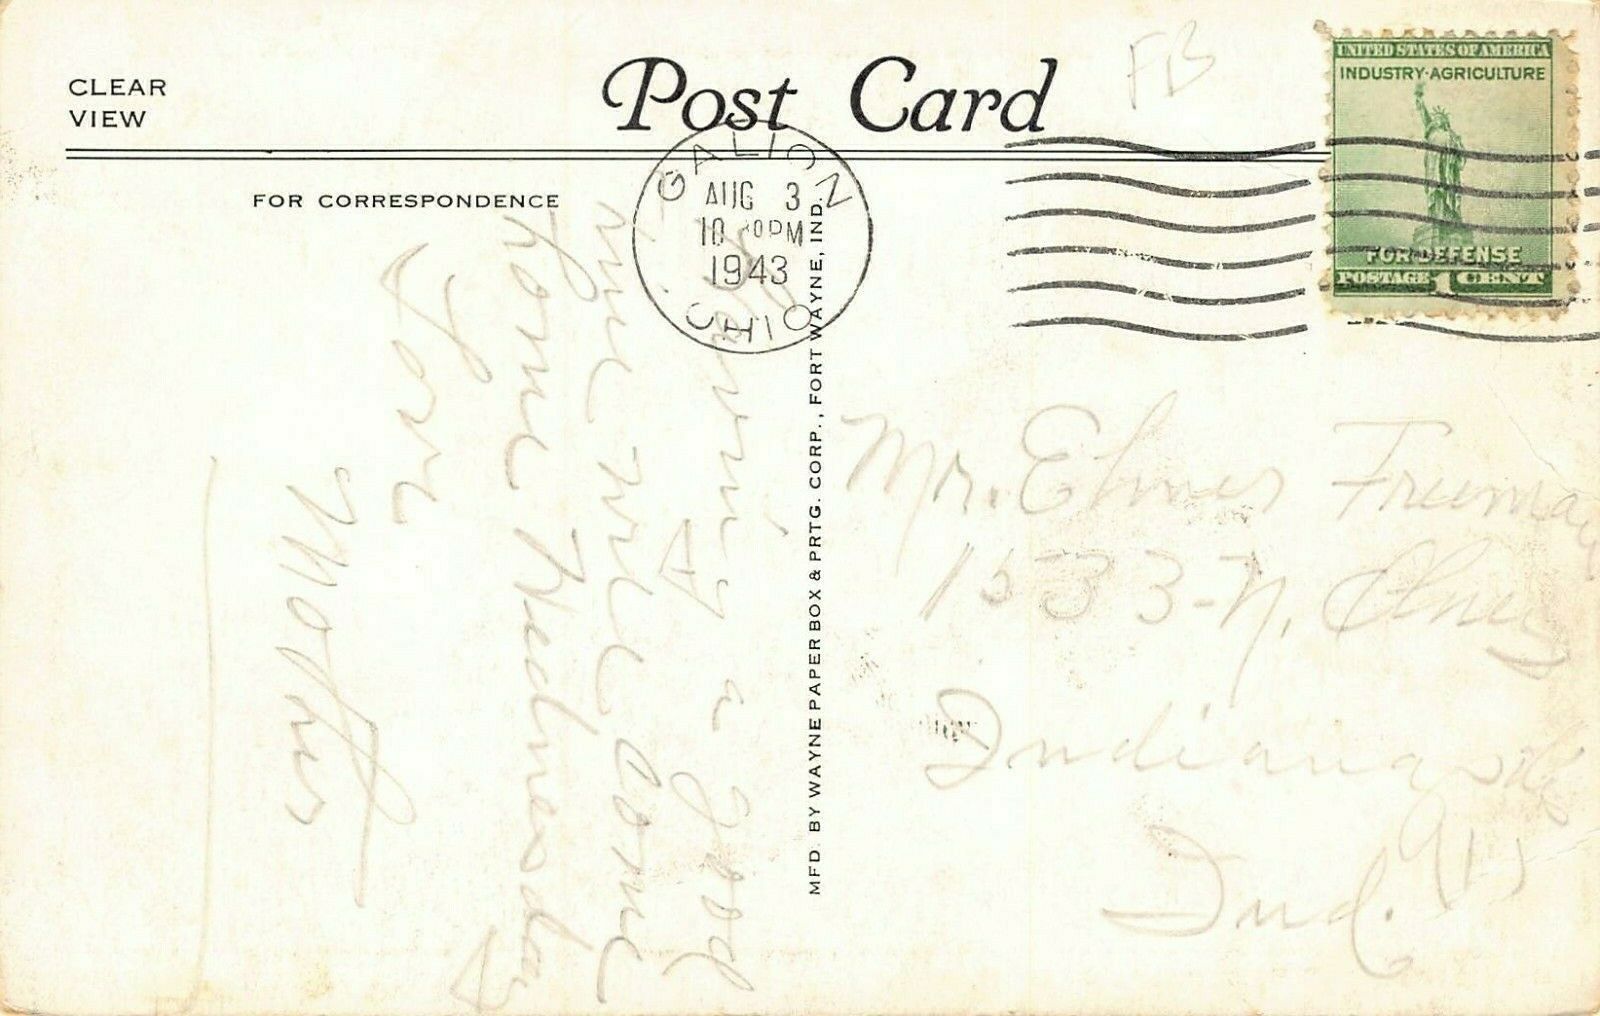 CLEAR
VIEW
Post Card
FB
UNITED STATES OF AMERICA
INDUSTRY·AGRICULTURE
FOR DEFENSE
POSTAGE 1 CENT
GALION
AUG 3
10 PM
1943
OHIO
FOR CORRESPONDENCE
Having a good
time will come
home Wednesday
Love
Mother
MFD. BY WAYNE PAPER BOX & PRTG. CORP., FORT WAYNE, IND.
Mr. Elmer Freeman
1533-N. Olney
Indianapolis
Ind.